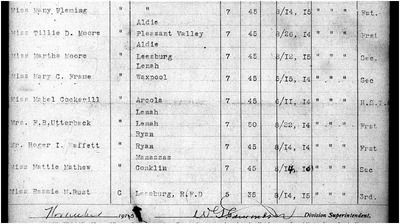 Miss Mary Fleming " " 7 45 8/14, 15 " " " Fst.
Aldie
Miss Tillie D. Moore " Pleasant Valley 7 45 8/26, 14 " " " Frst
Aldie
Miss Martha Moore " Leesburg 7 45 8/12, 14 " " " Sec.
Lenah
Miss Mary C. Frame " Waxpool 7 45 5/15, 14 " " " Sec
Miss Mabel Cockerill " Arcola 7 45 6/11, 14 " " "
Lenah
Mrs. F.B.Utterback " Lenah 7 50 8/22, 14 " " " Frst
Ryan
Mr. Roger I. Maffett " Ryan 7 45 8/14, 14 " " " Frst
Manassas
Miss Mattie Mathew " Conklin 7 45 " " " Sec
Miss Bessie M.Rust C Leesburg, R.F.D 5 35 8/14, 15 " " " 3rd.
Division Superintendent.